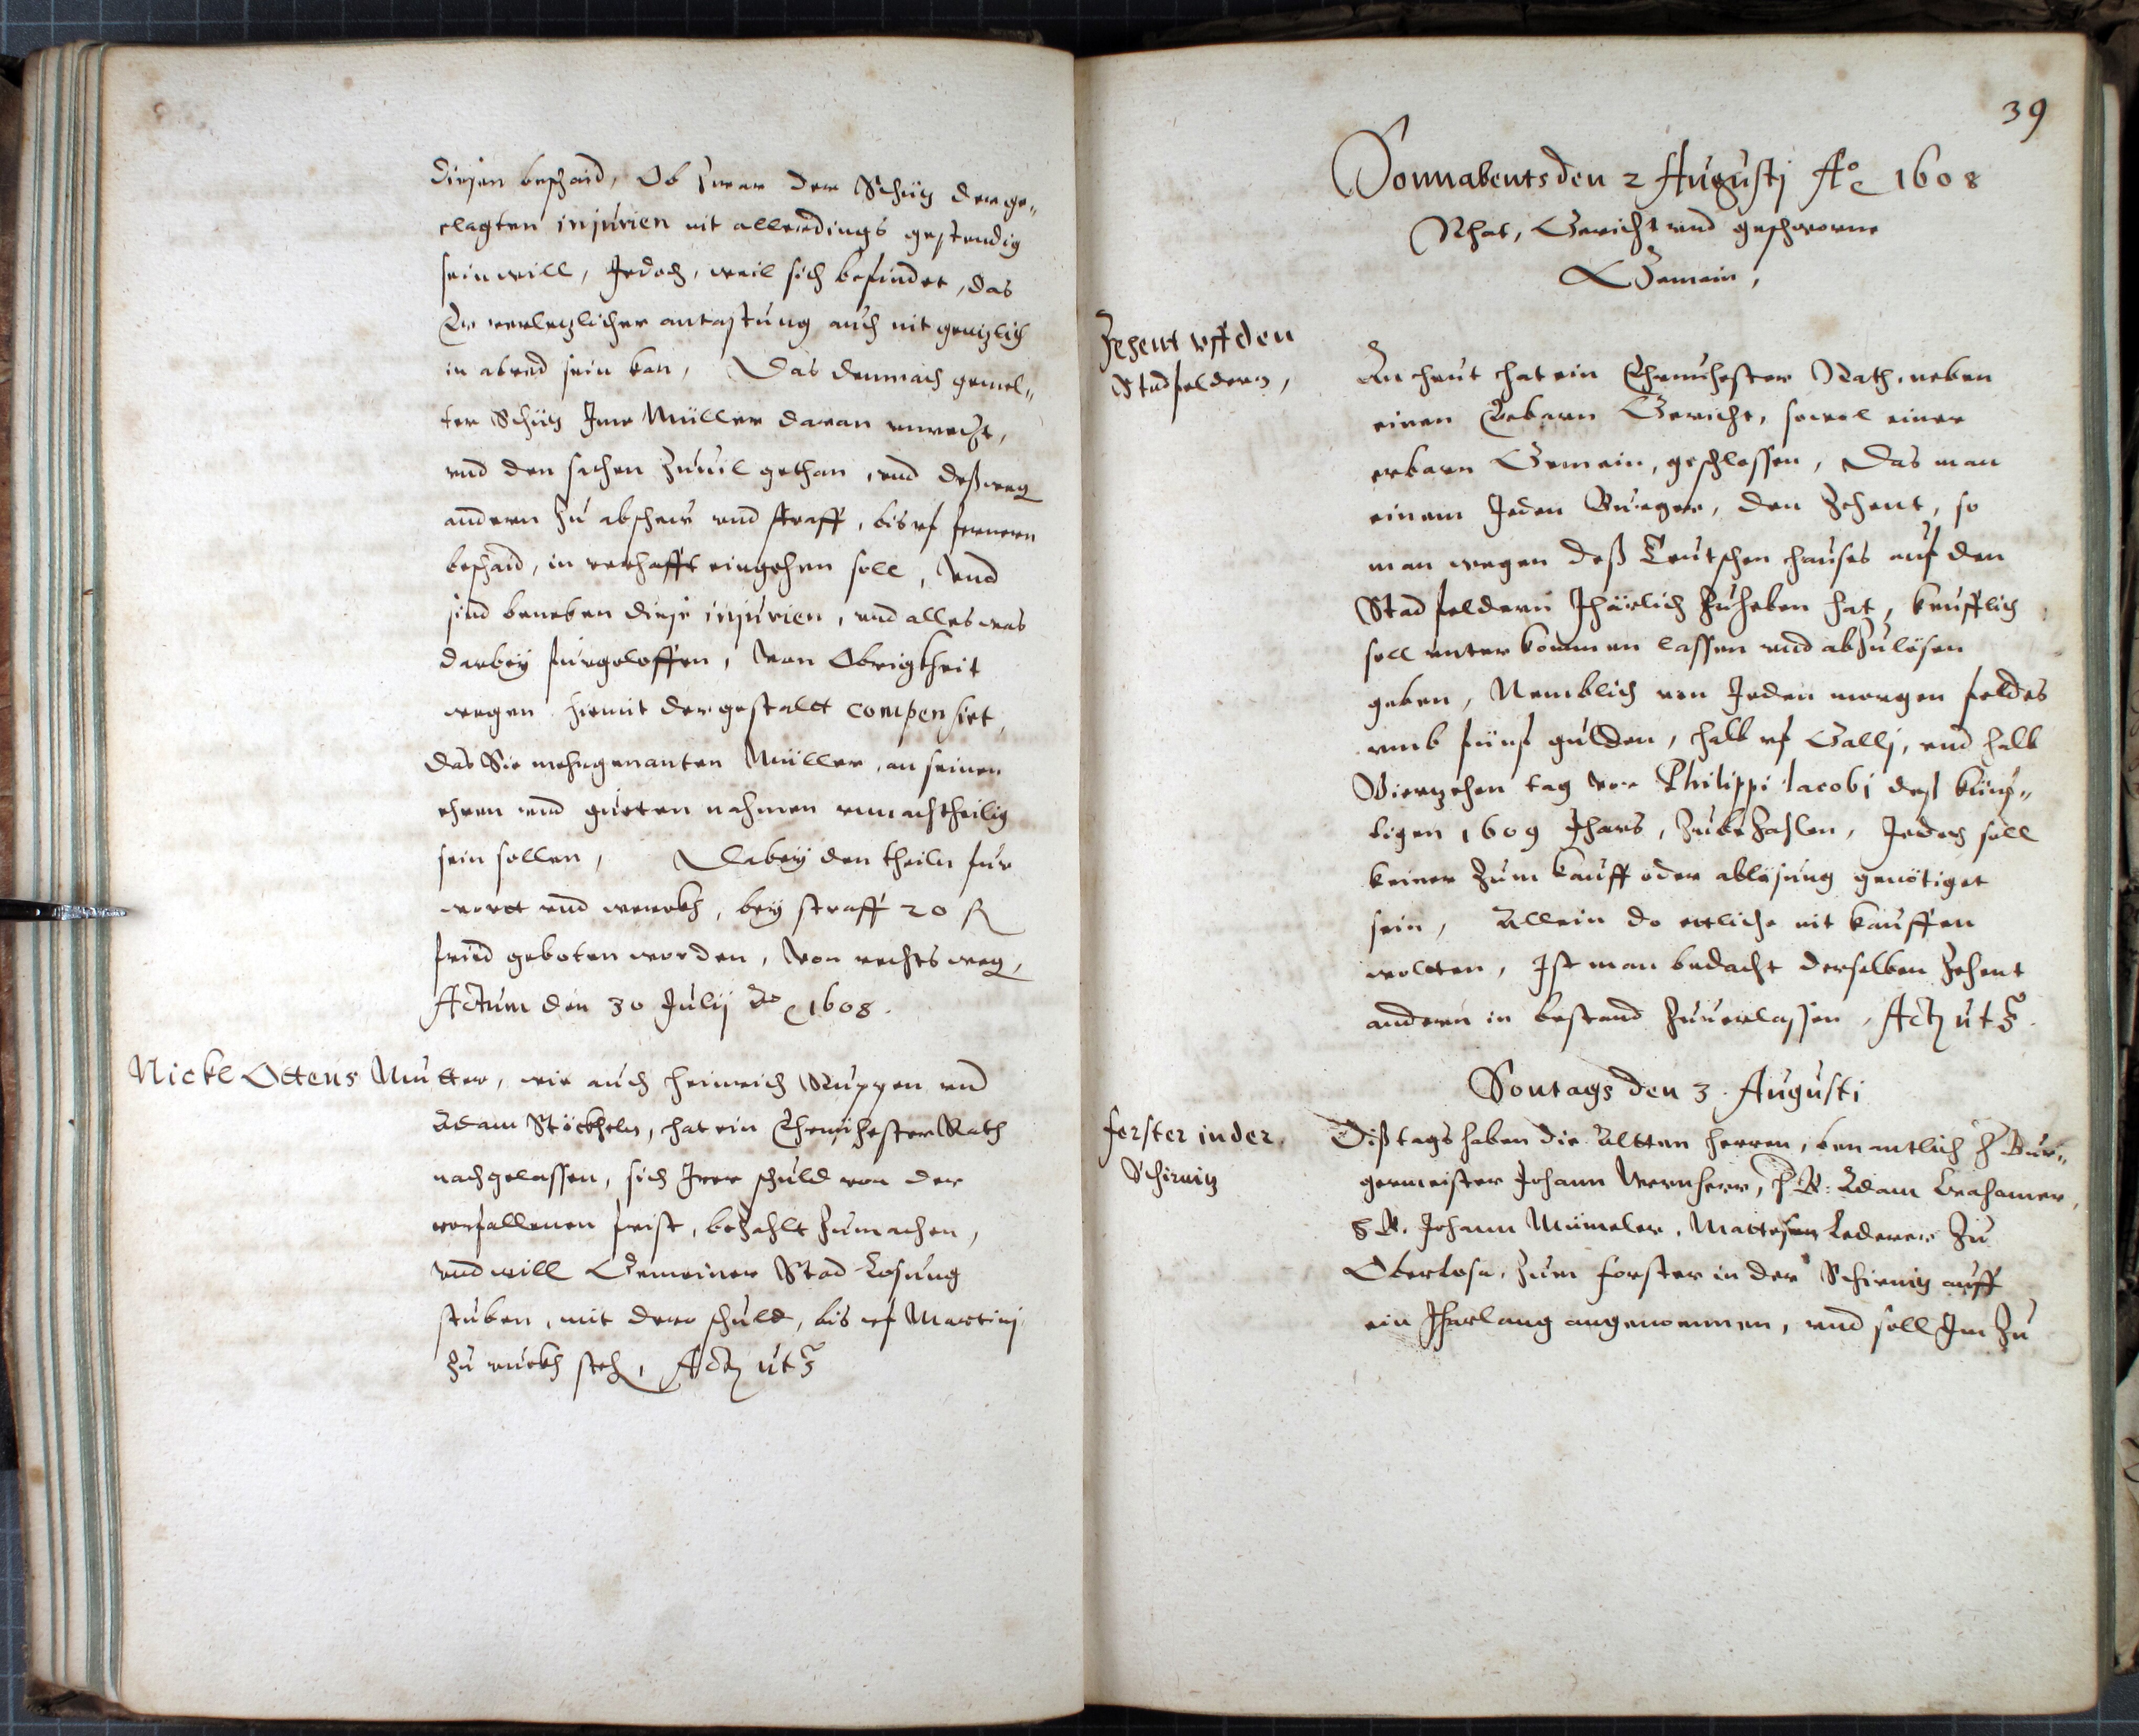 diesen beschaid, Ob zwar der Schüz der ge„
clagten injurien nit allerdings gestendig
sein will, Jedoch, weil sich befindet, das
Er verlezlicher antastung auch nit genzlich
in abred sein kan, Das demnach gemel„
ter Schüz Ime Müller daran unrecht,
und den sachen zuuil gethan, und deßweg
andern zu abscheu und straff, bis uf fernern
beschaid, in verhafft eingehen soll, Und
sind beneben diese injurien, und alles was
darbey fürgeloffen, Von Obrigkheit
wegen hiemit dergestaldt compensirt,
das Sie mehrgenanten Müller, an seinen
ehren und gueten nahmen unnachtheilig
sein sollen, Dabey den theiln für
wordt und werckh, bey straff 20 fl
fried geboten worden, Von rechts weg,
Actum den 30 Julij Ao 1608.
Nickl Ottens Mutter, wie auch Heinrich Ruppen und
Adam Stöckheln, hat ein Ehrnuhester Rath
nachgelassen, sich Irer schuld von der
verfallenen frist, bezahlt zumachen,
und will Gemeiner Stad Losung
stuben, mit dero schuld, bis uf Martinj
zu ruckh steh, Act ut s
39
Sonnabents den 2 Augustj Ao 1608
Rhat, Gericht und geschworne
Gemein,
Zehent uff den
Stadfeldern,
An heut hat ein Ehrnuhester Rath, neben
einen Erbarn Gericht, sowol einer
erbarn Gemein, geschlossen, Das man
einem Jeden Burger, den Zehent, so
man wegen deß Teutschen hauses auf den
Stadfeldern Jhärlich zuheben hat, keufflich
soll unterkommen lassen und abzulösen
geben, Nemblich von Jeden morgen feldes
umb fünf gulden, halb uf Gallj, und halb
Vierzehen tag vor Philippi Jacobj deß künf„
tigen 1609 Jhars, zubezahlen, Jedoch soll
keiner zum kauff oder ablösung genötiget
sein, Allein do etliche nit kauffen
wolten, Ist man bedacht derselben Zehent
andern in bestand zuuerlassen, Act ut s.
Sontags den 3. Augusti
forster in der
Schirnitz
Diß tags haben die Altten herren, benantlich H Bur„
germeister Johann Wernherr, H B. Adam
H B. Johann Mümeler, Lederer zu
Oberlosa, zum forster in der Schirnitz auff
ein Jharlang angenommen, und soll Im zu